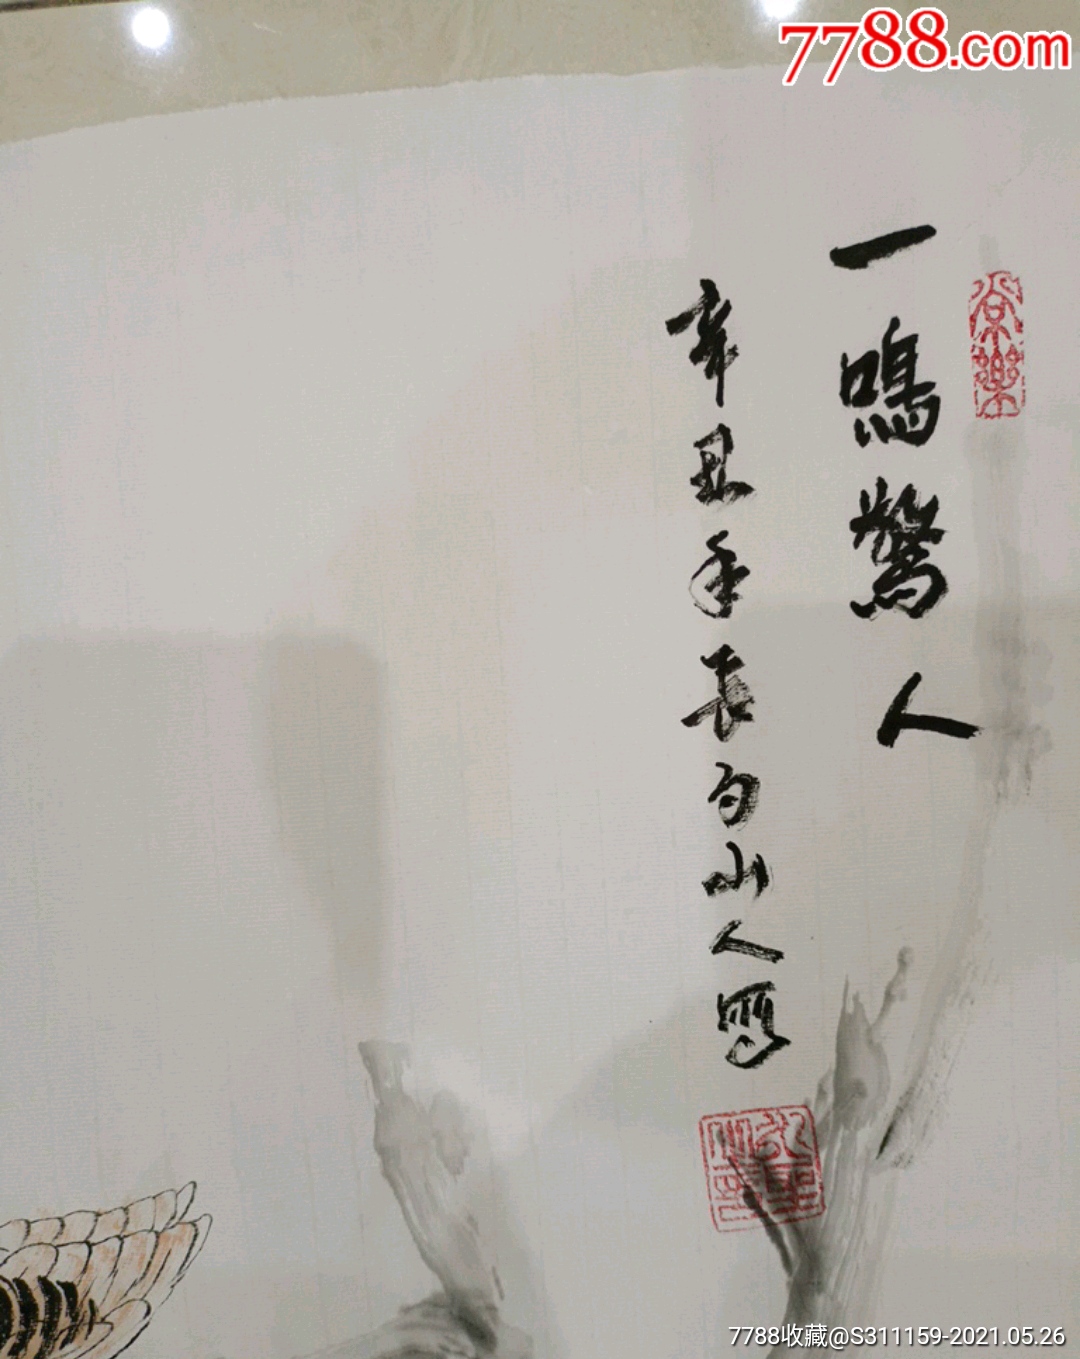 7788.com
一鳴驚人
辛丑年長白山人寫
7788收藏@S311159-2021.05.26